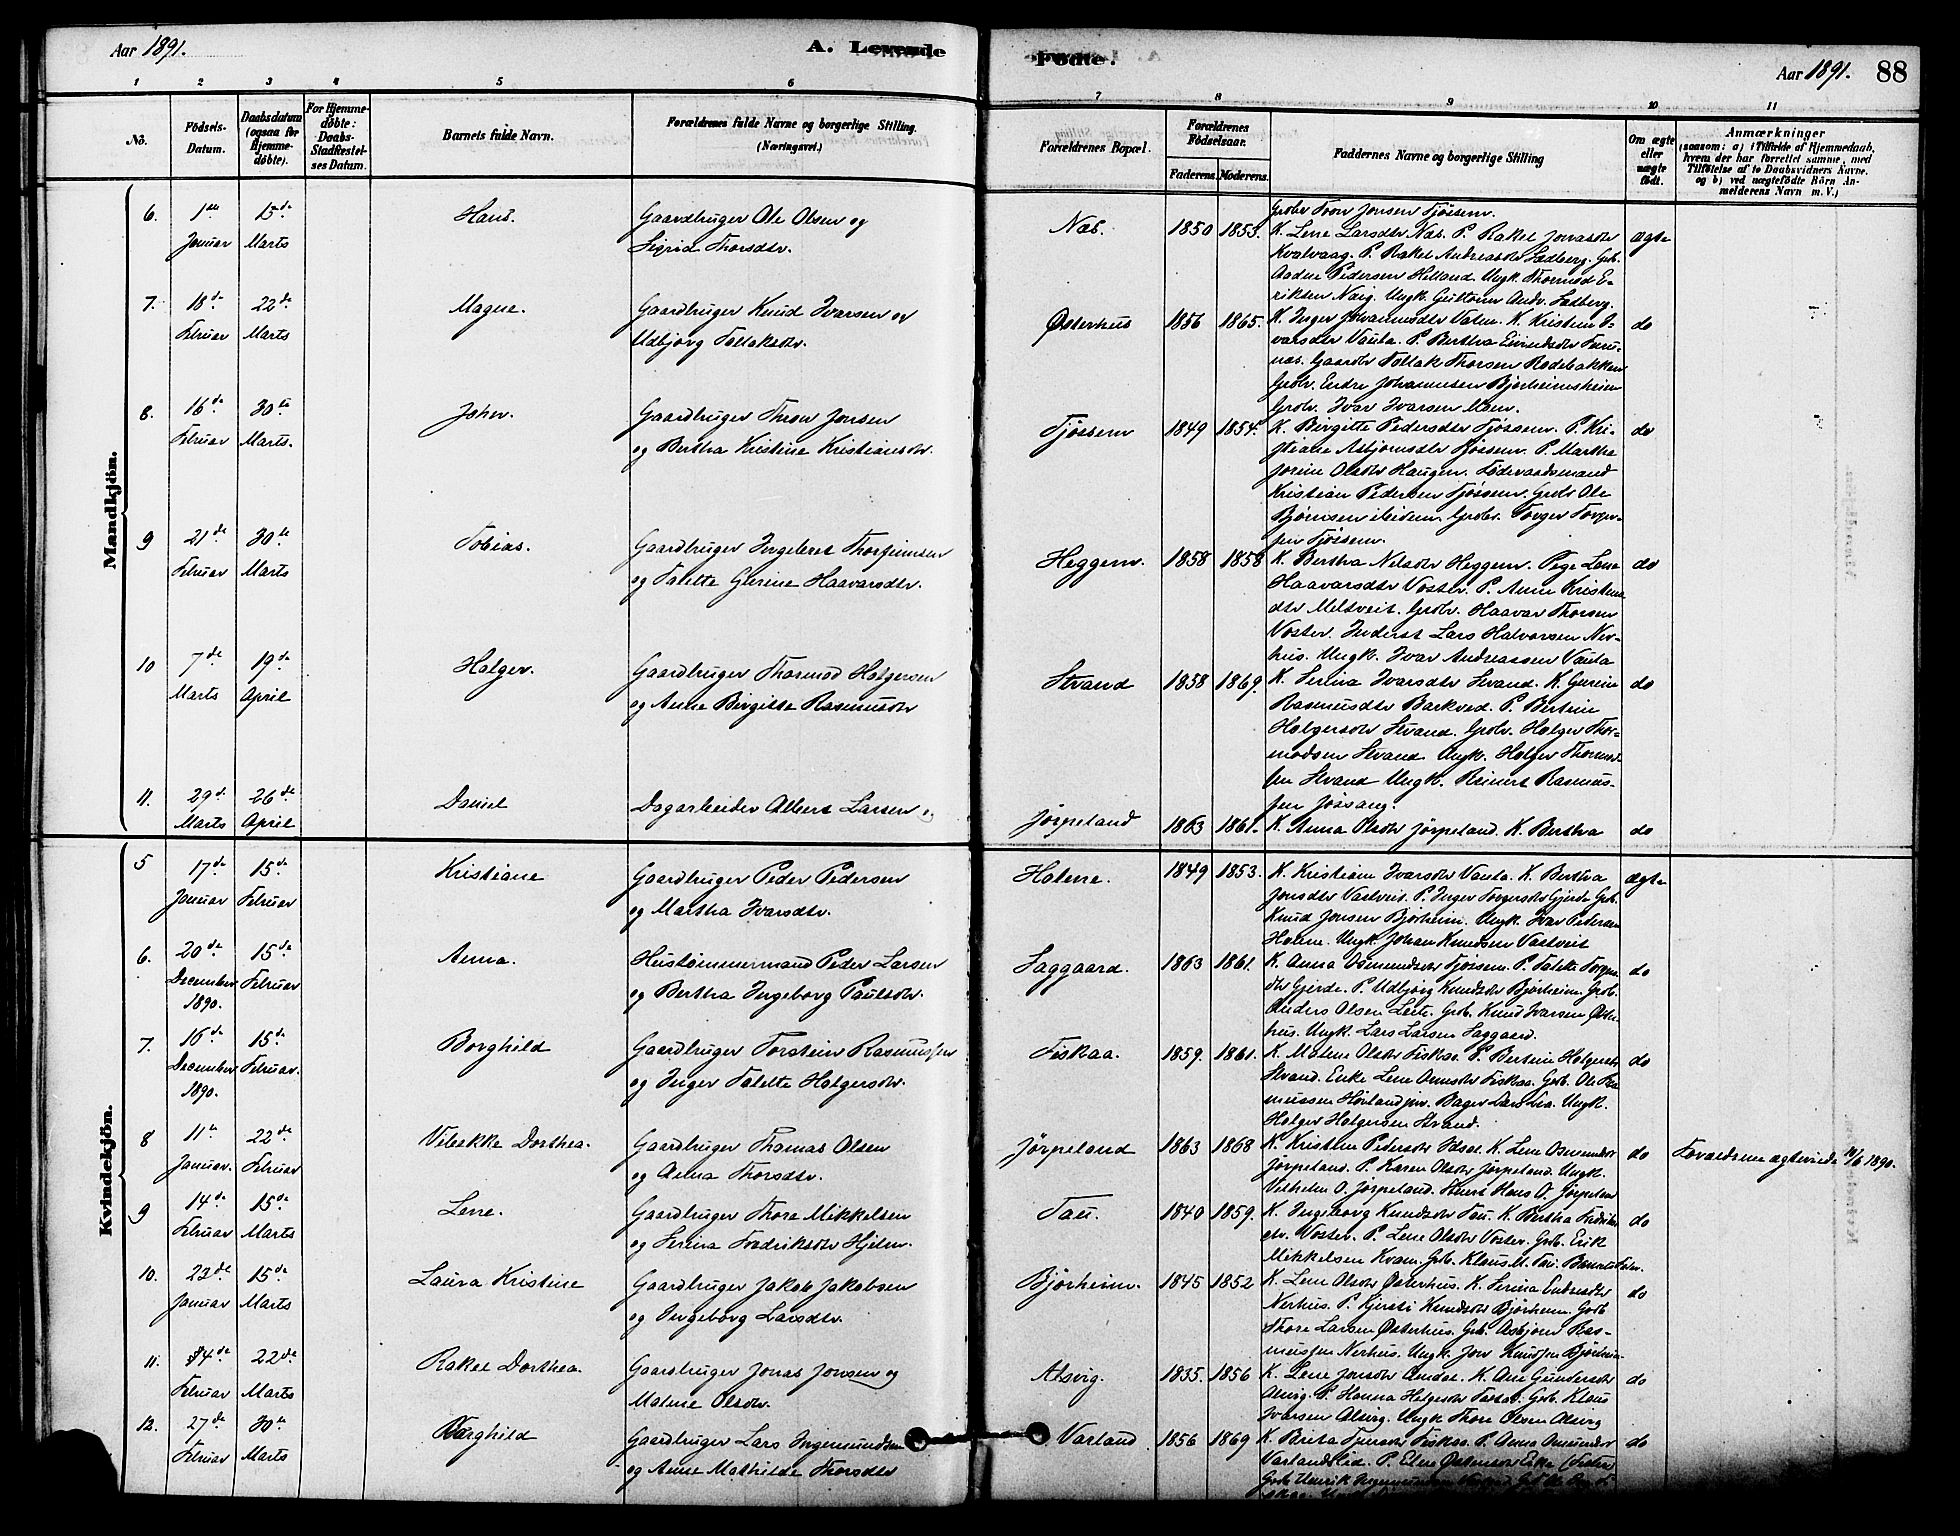 Aar 1891.
A. Levende
Fødte.
Aar 1891.
88
1 2 3 4 5 6 7 8 9 10 11
No.
Födsels-Datum.
Daabsdatum (ogsaa for Hjemmedöbte).
For Hjemmedöbte: Daabs-Stadfæstelses Datum.
Barnets fulde Navn.
Forældrenes fulde Navne og borgerlige Stilling. (Næringsvei.)
Forældrenes Bopæl.
Forældrenes Födselsaar.
Faderens. Moderens.
Faddernes Navne og borgerlige Stilling
Om ægte eller uægte födt.
Anmærkninger
(saasom: a) i Tilfælde af Hjemmedaab,
hvem der har forrettet samme, med
Tilföielse af to Daabsvidners Navne.
og b) ved uægtefödte Börn An-
melderens Navn m. V.)
Mandkjön.
6. 1ste Januar 15de Marts Hans. Gaardbruger Ole Olsen og
Sigrid Thorsdtr. Næs. 1850 1853. ægte
Grdbr Toor Jonsen Tjøssem.
K. Lene Larsdtr Næs. P. Rakel Jonasdtr
Kvalvaag. P. Rakel Andreasdtr Ladberg. Grb.
Aadne Pedersen Helland. Ungk. Thormod E-
riksen Någ. Ungk. Guttorm Andr. Ladberg.
7. 18de Februar 22de Marts Magne. Gaardbruger Knud Ivarsen og
Udbjørg Tollaksdtr. Østerhus 1856 1865. do
K. Inger Johannesdtr Vatne. K. Kristine I-
varsdtr Vaula. P. Bertha Eivindsdtr Furu-
næs. Gaardbr Tollak Thorsen Rødebakken
Grdbr. Endre Johannesen Bjørheimsheien
Grdbr. Ivar Ivarsen Moen.
8. 16de Februar 30te Marts. John. Gaardbruger Thore Jonsen
og Bertha Kristine Kristiansdtr. Tjøssem 1849 1854. do
K. Birgitte Pedersdtr Tjøssem. P. Kri-
stiane Asbjørnsdtr Tjøssem. P. Martha
Jorine Olsdtr Haugen. Føderaadsmand
Kristian Pedersen Tjøssem. Grdbr Ole
Bjørnsen ibidem. Grdbr. Torger Torger-
sen Tjøssem.
9 21de Februar 30te Marts Tobias. Gaardbruger Ingebret Thorfinnsen
og Talette Gurine Haavarsdtr. Heggem. 1858 1858 do
K. Bertha Nelsdtr Heggem. Pige Lena
Haavarsdtr Voster. P. Anne Kristens
dtr Meltveit. Grdbr. Haavar Thorsen
Voster. Inderst Lars Halvorsen Ner-
hus. Ungk. Ivar Andreassen Vaula
10 7de Marts 19de April Holger. Gaardbruger Thormod Holgersen
og Anne Birgitte Rasmusdtr Strand 1858 1869. do
K. Serina Ivarsdtr Strand. K. Gurine
Rasmusdtr Barkved. P. Bertine
Holgersdtr Strand. Grdbr. Holger Thor-
modsen Strand Ungk. Holger Thormod
sen Strand Ungk. Reinert Rasmus-
sen Jøssang.
11. 29de Marts 26de April Daniel Dagarbeider Albert Larsen og
Jørpeland 1863 1861. do
K. Anna Olsdtr Jørpeland. K. Bertha
Kvindekjön.
5 17de Januar 15de Februar Kristiane Gaardbruger Peder Pedersen
og Martha Ivarsdtr. Holene. 1849 1853. ægte
K. Kristiane Ivarsdtr Vaula. K. Bertha
Jonsdtr Vastveit. P. Inger Torgersdtr Gjerde Grb.
Knud Jonsen Bjørheim. Ungk. Ivar Pedersen
Holene. Ungk. Johan Knudsen Vastveit
6. 20de December 1890. 15de Februar Anna. Hustømmermand Peder Larsen
og Bertha Ingeborg Paulsdtr. Laggaard. 1863 1861. do
K. Anna Osmundsdtr Tjøssem. P. Talette Torger
dtr Gjerde. P. Udbjørg Knudsdtr Bjørheim. Grb.
Anders Olsen Leite. Grb. Knud Ivarsen Øster-
hus. Ungk. Lars Larsen Laggaard.
7. 16de December 1890. 15de Februar. Borghild Gaardbruger Torstein Rasmussen
og Inger Talette Holgersdtr. Fiskaa. 1859. 1861. do
K. Malene Olsdtr Fiskaa. P. Bertine Holgersdtr
Strand. Enke Lene Osmdtr Fiskaa. Grb. Ole Ras
mussen Hørland jnr. Bager Lars Lea. Ungk.
Holger Holgersen Strand.
8 11te Januar. 22de Februar Vibekke Dorthea. Gaardbruger Thomas Olsen
og Anna Thorsdtr. Jørpeland 1863 1868 do
K. Kristine Pedersdtr Idsal. K. Lene Osmundsdtr
Jørpeland. P. Karen Olsdtr Jørpeland. Ungk.
Vilhelm O. Jørpeland. Hans O. Jørpeland
Forældrene ægteviede 10/6 1890.
9 14de Februar 15de Marts Lene. Gaardbruger Thore Mikkelsen
og Serina Fredriksdtr Hjelm. Tau. 1840 1859. do
K. Ingeborg Knudsdtr Tau. K. Bertha Fredriks
dtr. Voster. P. Lene Olsdtr Voster. Grb. Erik
Mikkelsen Kvam. Grb. Klaus M. Tau.
10. 23de Januar 15de Marts Laura Kristine Gaardbruger Jakob Jakobsen
og Ingeborg Larsdtr. Bjørheim. 1845 1852 do
K. Lene Olsdtr Østerhus. K. Serina Endresdtr
Nerhus. P. Kjersti Knudsdtr Bjørheim. Grdb
Thore Larsen Østerhus. Grb. Asbjørn Ras-
mussen Nerhus. Ungk. Jon Knudsen Bjørheim
11. 4de Februar 22de Marts Rakel Dorthea. Gaardbruger Jonas Jonsen og
Malene Olsdtr. Alsvig. 1835. 1856 do
K. Lene Jonsdtr Amdal. K. Ane Gundersdtr
Alsvig. P. Hanna Helgesdtr Grb. Klaus
Ivarsen Alsvig. Ungk Thore Olsen Alsvig
12. 27de Februar 30te Marts Borghild Gaardbruger Lars Ingemundsen
og Anne Mathilde Thorsdtr Varland 1856 1869 do
K. Brita Fiskaa P. Anna Osmundsdtr
Varlandslid. P. Elene Østensdtr Eike
Grdb Henrik